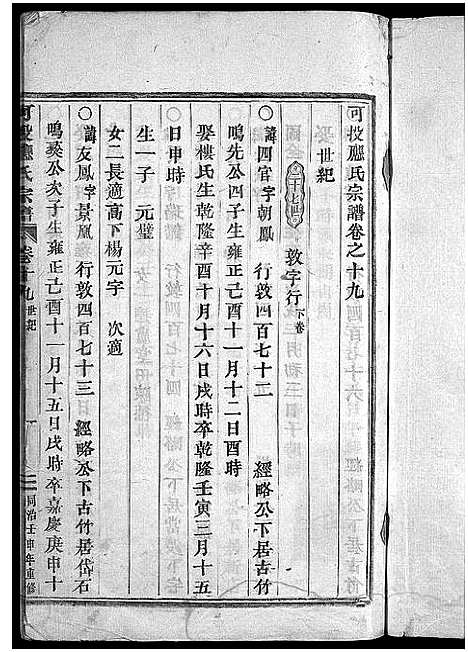 可投應氏宗譜卷之十九
世紀
三十七世 敦字行下卷
○諱四官字朝鳳 行敦四百七十二 經略公下居古竹
鳴先公四子生雍正己酉十一月十二日酉時
娶樓氏生乾隆辛酉十月十六日戌時卒乾隆壬寅三月十五
日申時
生一子 元璧
女二長適高下楊元字 次適
○諱友鳳字景鳳 行敦四百七十三 經略公下古竹居岱石
鳴葵公次子生雍正己酉十一月十五日戌時卒嘉慶庚申十
可投應氏宗譜 卷十九 世紀 一 同治壬申年重修